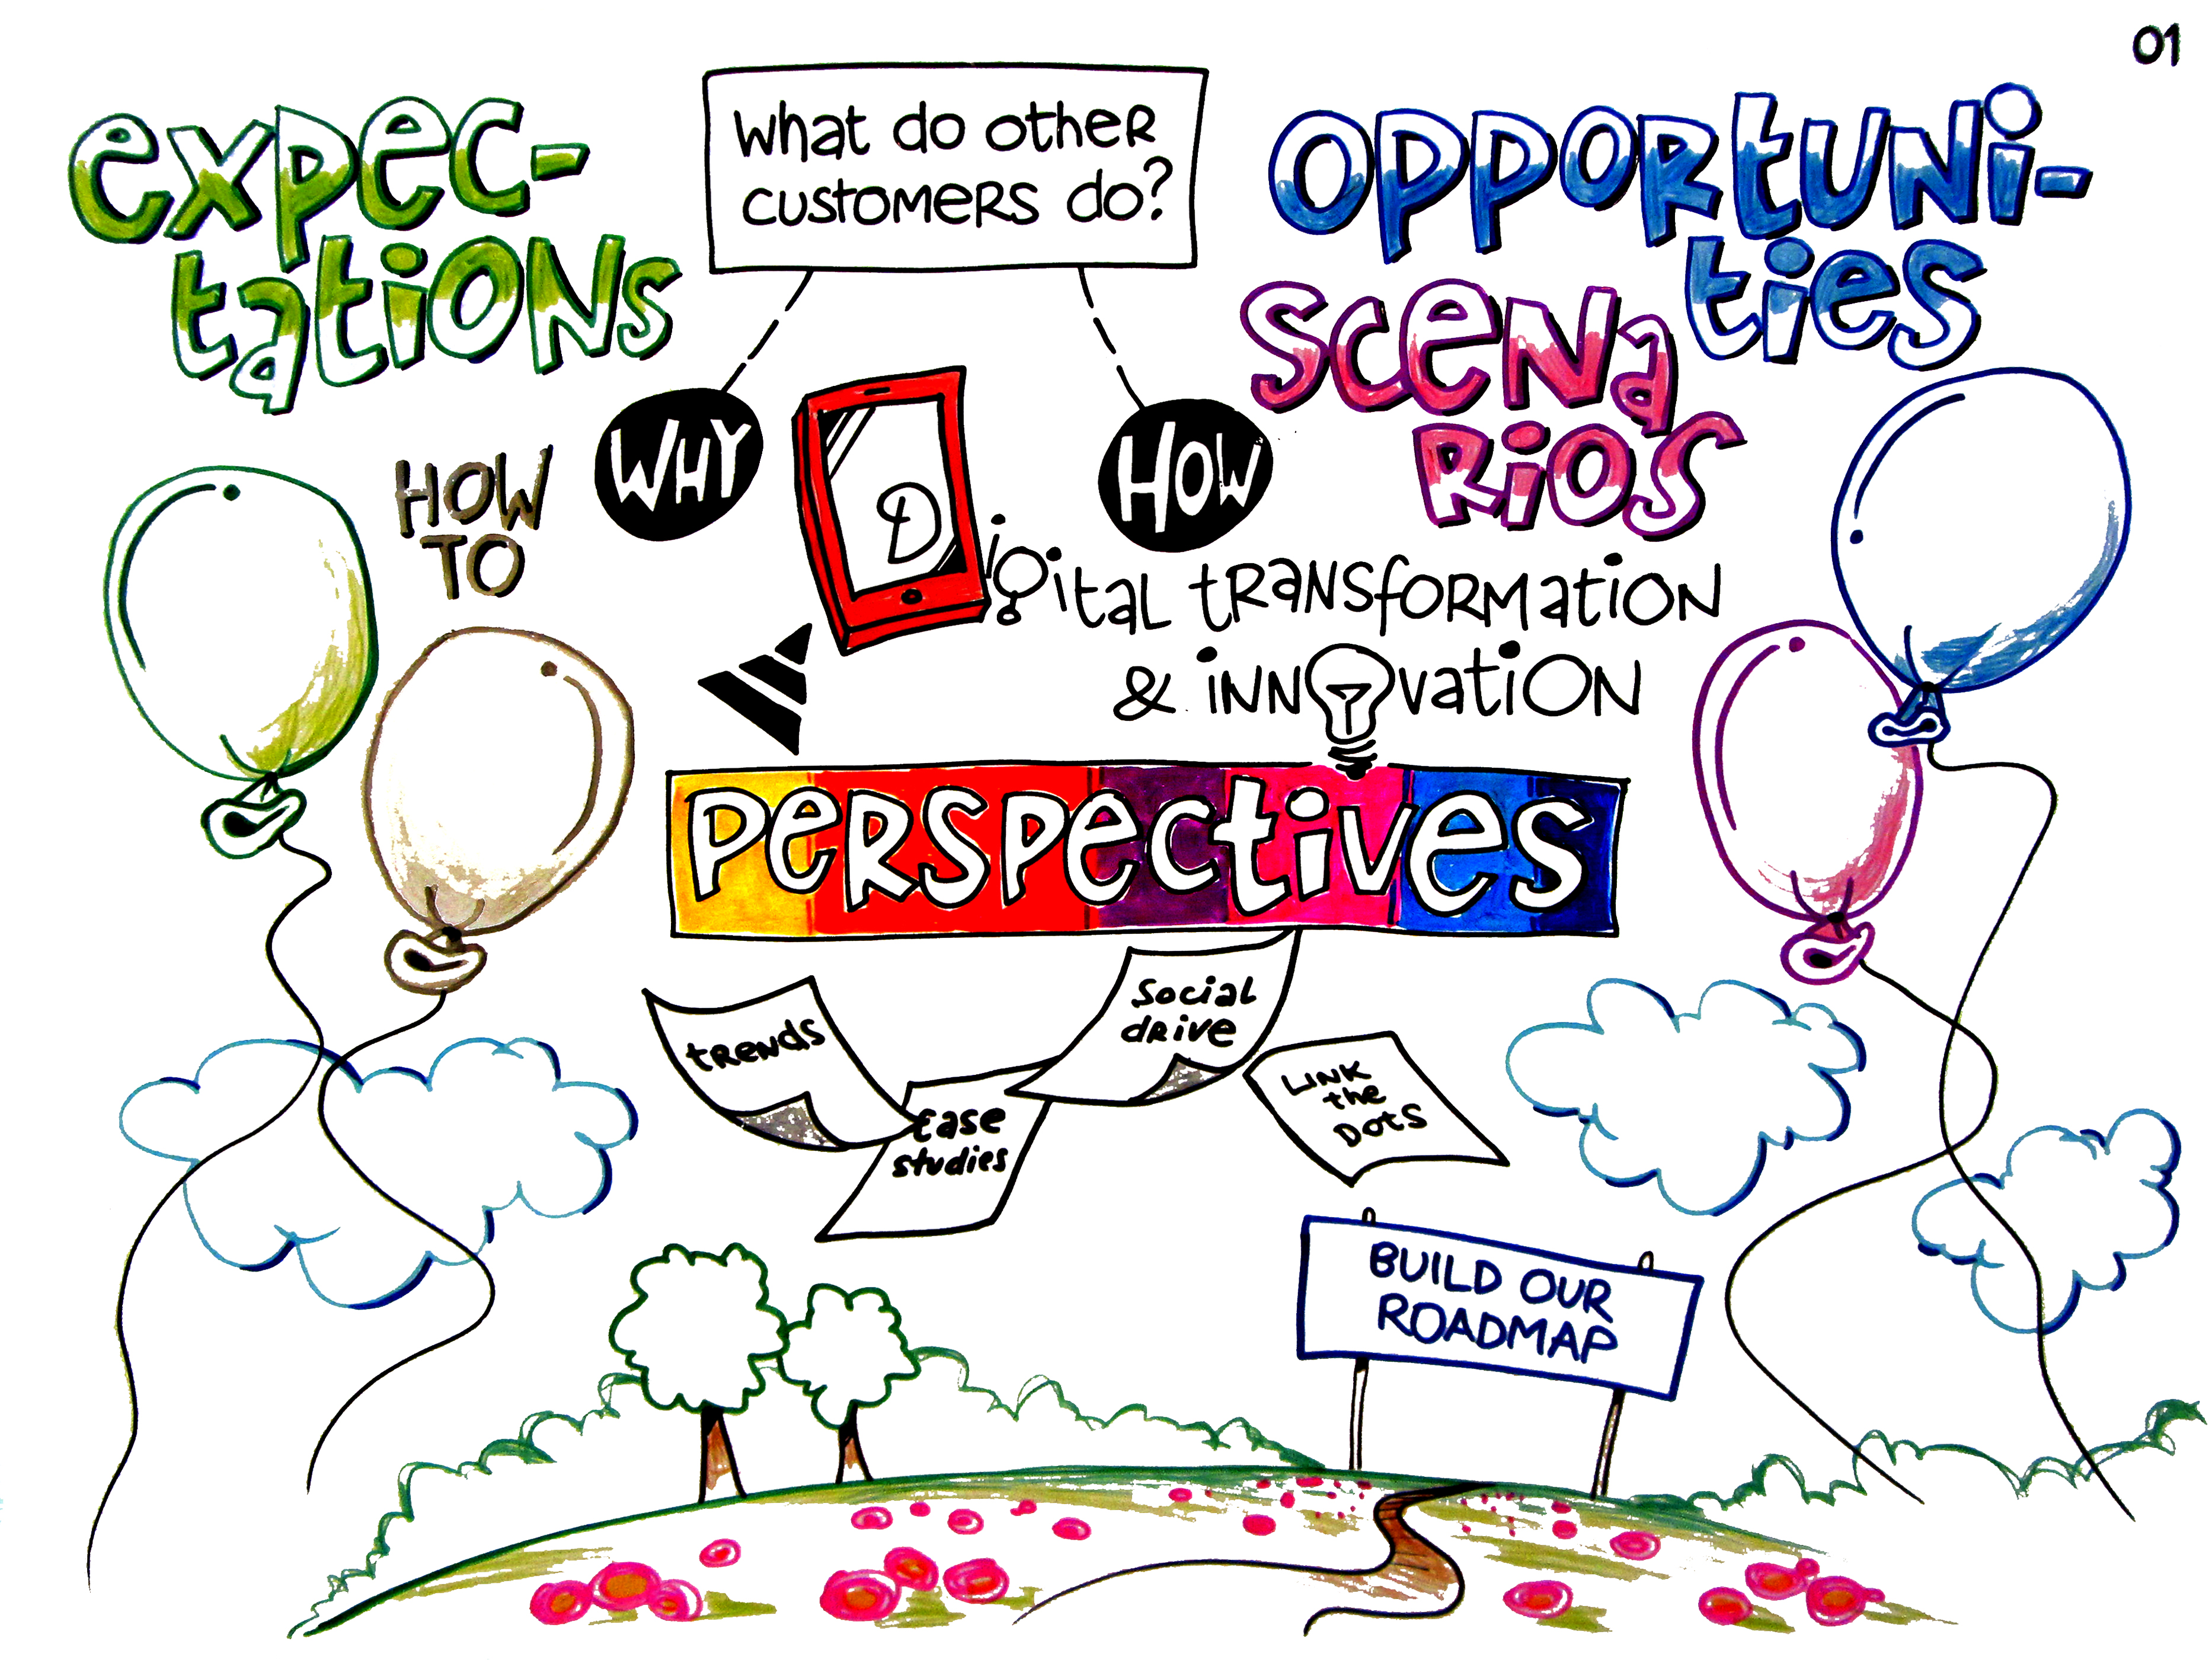 01
expec-
tations
What do other
customers do?
Opportuni-
ties
Scena
rios
How
to
Why
How
Digital transformation
& innovation
Perspectives
trends
Case
studies
Social
drive
Link
the
Dots
BUILD OUR
ROADMAP